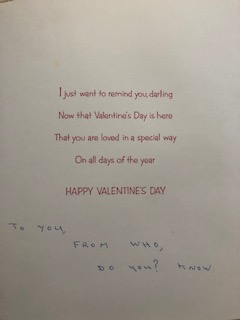 I just want to remind you, darling
Now that Valentine's Day is here
That you are loved in a special way
On all days of the year
HAPPY VALENTINE'S DAY
TO YOU,
FROM WHO,
DO YOU? KNOW